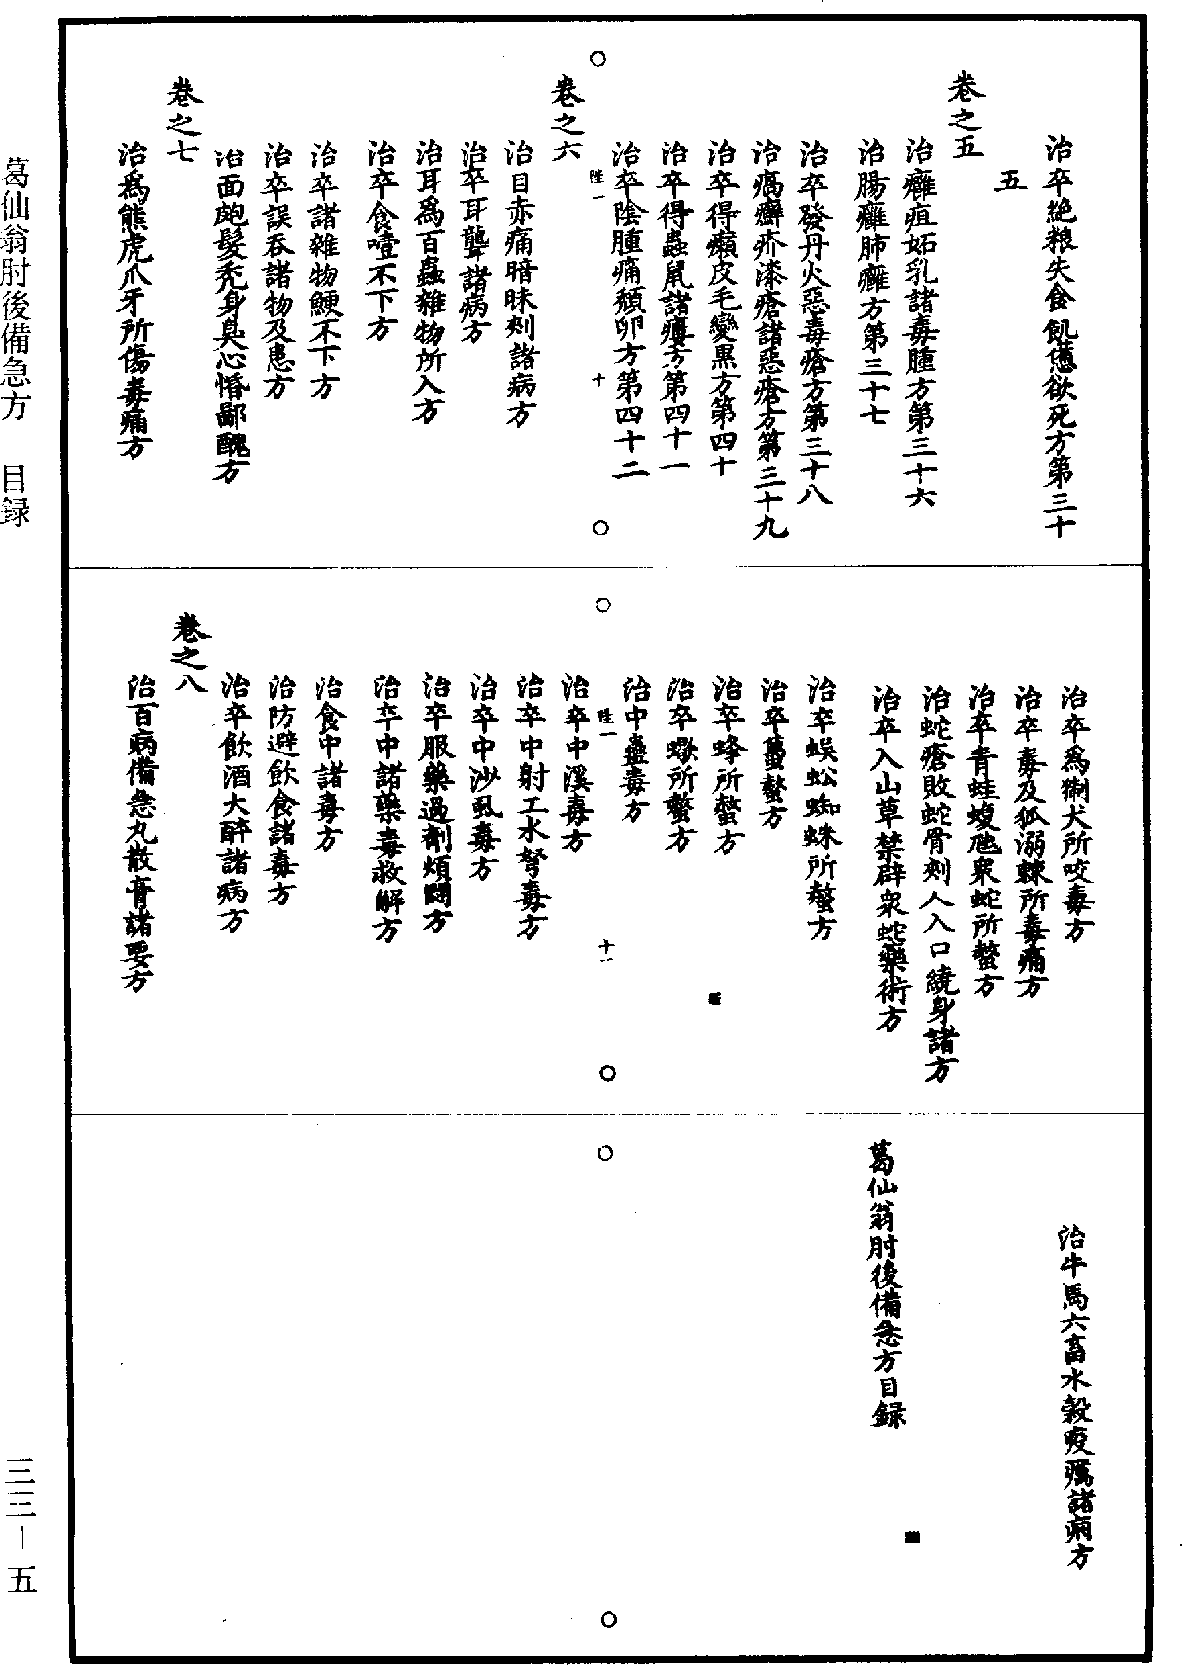 治卒絶粮失食飢憊欲死方第三十
五
卷之五
治癰疽妬乳諸毒腫方第三十六
治腸癰肺癰方第三十七
治卒發丹火惡毒瘡方第三十八
治瘑癬疥漆瘡諸惡瘡方第三十九
治卒得癩皮毛變黒方第四十
治卒得蟲鼠諸瘻方第四十一
治卒陰腫痛㿗卵方第四十二
陞一
十
卷之六
治目赤痛暗昧刾諸病方
治卒耳聾諸病方
治耳爲百蟲雜物所入方
治卒食噎不下方
治卒諸雜物鯁不下方
治卒誤吞諸物及患方
治面皰髮禿身臭心惛鄙醜方
卷之七
治爲熊虎爪牙所傷毒痛方
治卒爲猘犬所咬毒方
治卒毒及狐溺棘所毒痛方
治卒青蛙蝮虺衆蛇所螫方
治蛇瘡敗蛇骨刾人入口繞身諸方
治卒入山草禁辟衆蛇藥術方
治卒蜈蚣蜘蛛所螫方
治卒蠆螫方
治卒蜂所螫方
治卒蠍所螫方
治中蠱毒方
陞一
十一
治卒中溪毒方
治卒中射工水弩毒方
治卒中沙虱毒方
治卒服藥過劑煩悶方
治卒中諸藥毒救解方
治食中諸毒方
治防避飲食諸毒方
治卒飲酒大醉諸病方
卷之八
治百病備急丸散膏諸要方
治牛馬六畜水穀疫癘諸病方
葛仙翁肘後備急方目録
葛仙翁肘後備急方 目録
三三—五